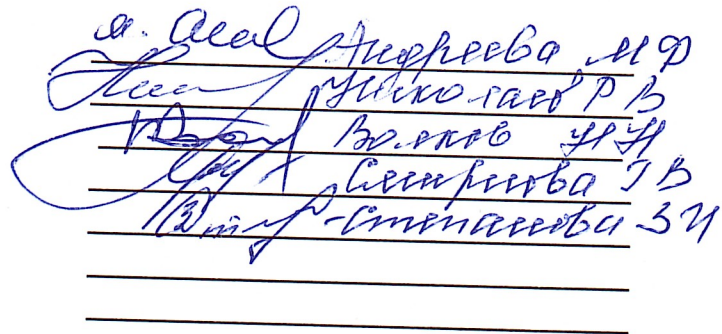 Андреева М Ф
Николаев Р В
Волков Н Н
Смирнова Т В
Степанова З И